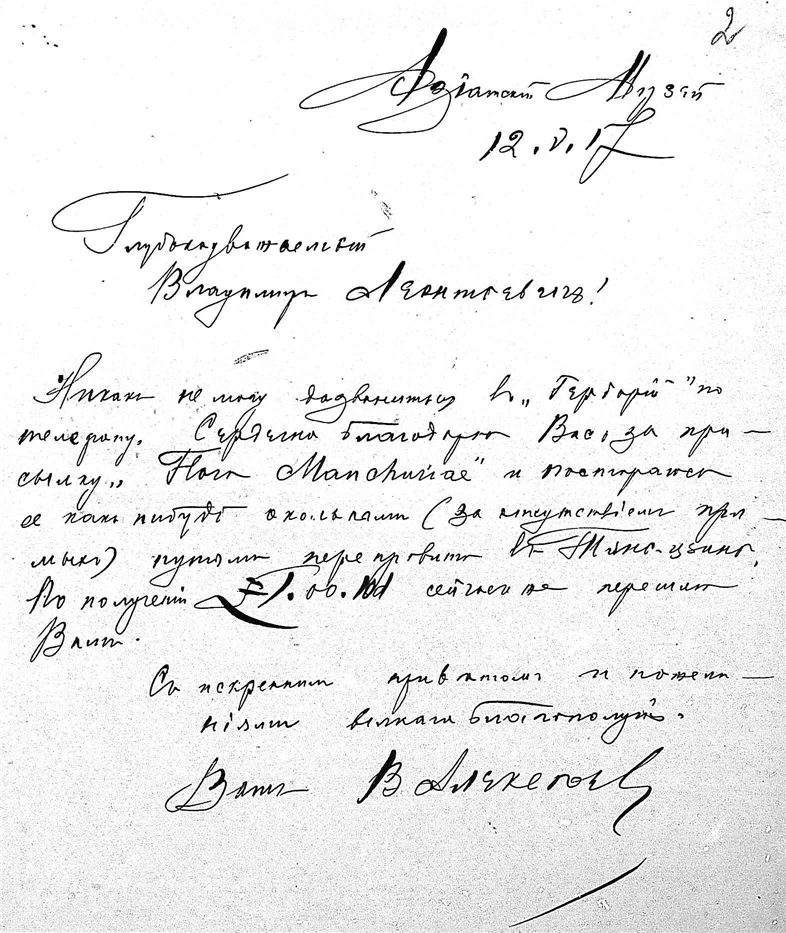 2
Азіатскій Музей
12.V.17
Глубокоуважаемый
Владимиръ Леонтьевичъ!
Никакъ не могу дозвониться въ „Гербарій" по
телефону. Сердечно благодарю Васъ за при-
сылку „Flora Manchuriae" и постараюсь
ее какъ нибудь окольнымъ (за отсутствіемъ пря-
мыхъ) путемъ переправить въ Тянь-цзинь.
По полученіи £1.00.10d сейчасъ же перешлю
Вамъ.
Съ искреннимъ привѣтомъ и пожела-
ніями всякаго благополучія.
Вашъ В Алексѣевъ